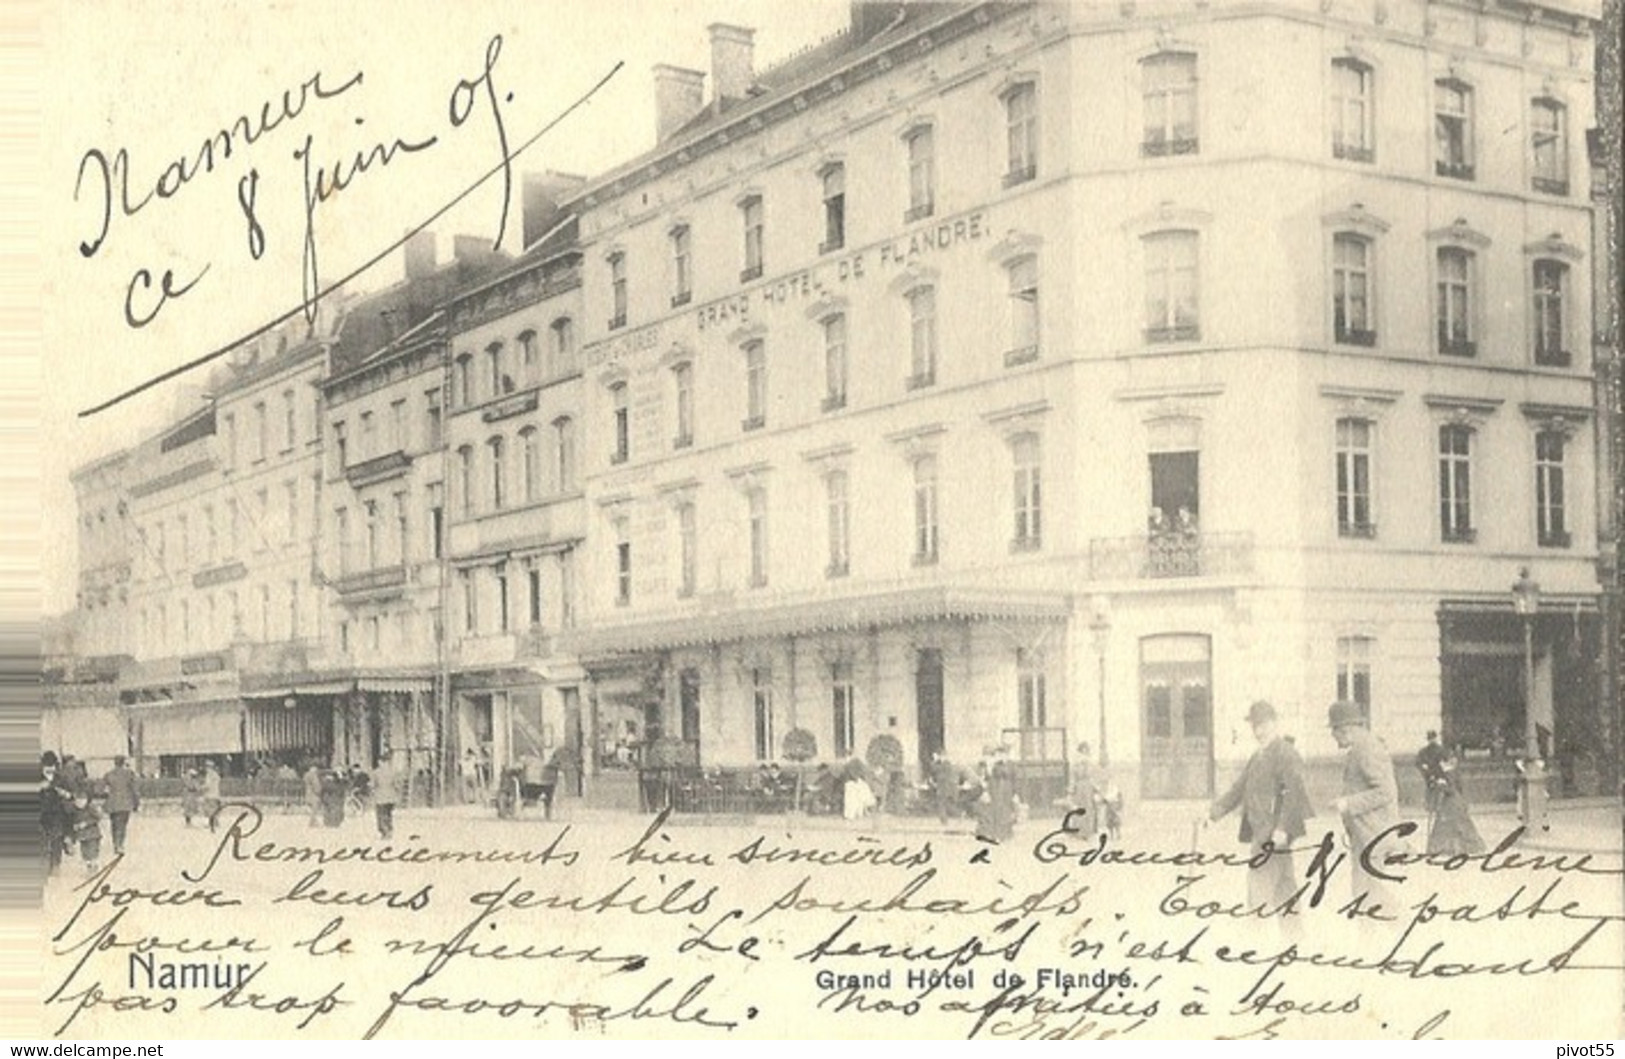 Namur
ce 8 Juin 05.
GRAND HÔTEL DE FLANDRE.
Remerciements bien sincères à Edouard & Caroline
pour leurs gentils souhaits. Tout se passe
pour le mieux, Le temps n'est cependant
pas trop favorable. Nos amitiés à tous
Namur
Grand Hôtel de Flandre.
pivot55